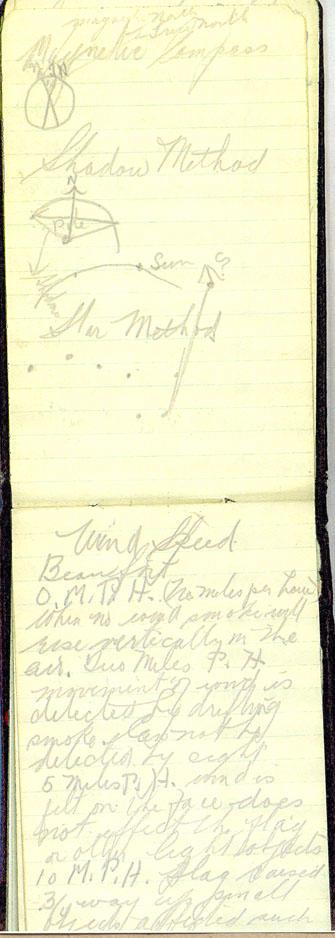 magnetic North
True North
Magnetic Compass
N
Shadow Method
N
Pole
Sun
Shadow
S
Star Method
Wind Speed
Beaufort
O. M. P. H. (no miles per hour)
when no wind smoke will
rise vertically in the
air. Two Miles P. H.
movement of wind is
detected by drifting
smoke. Can not be
detected by sight
5 Miles P. H. wind is
felt on the face-does
not effect the flag
or other light objects
10 M. P. H. flag raised
3/4 way up small
objects affected such